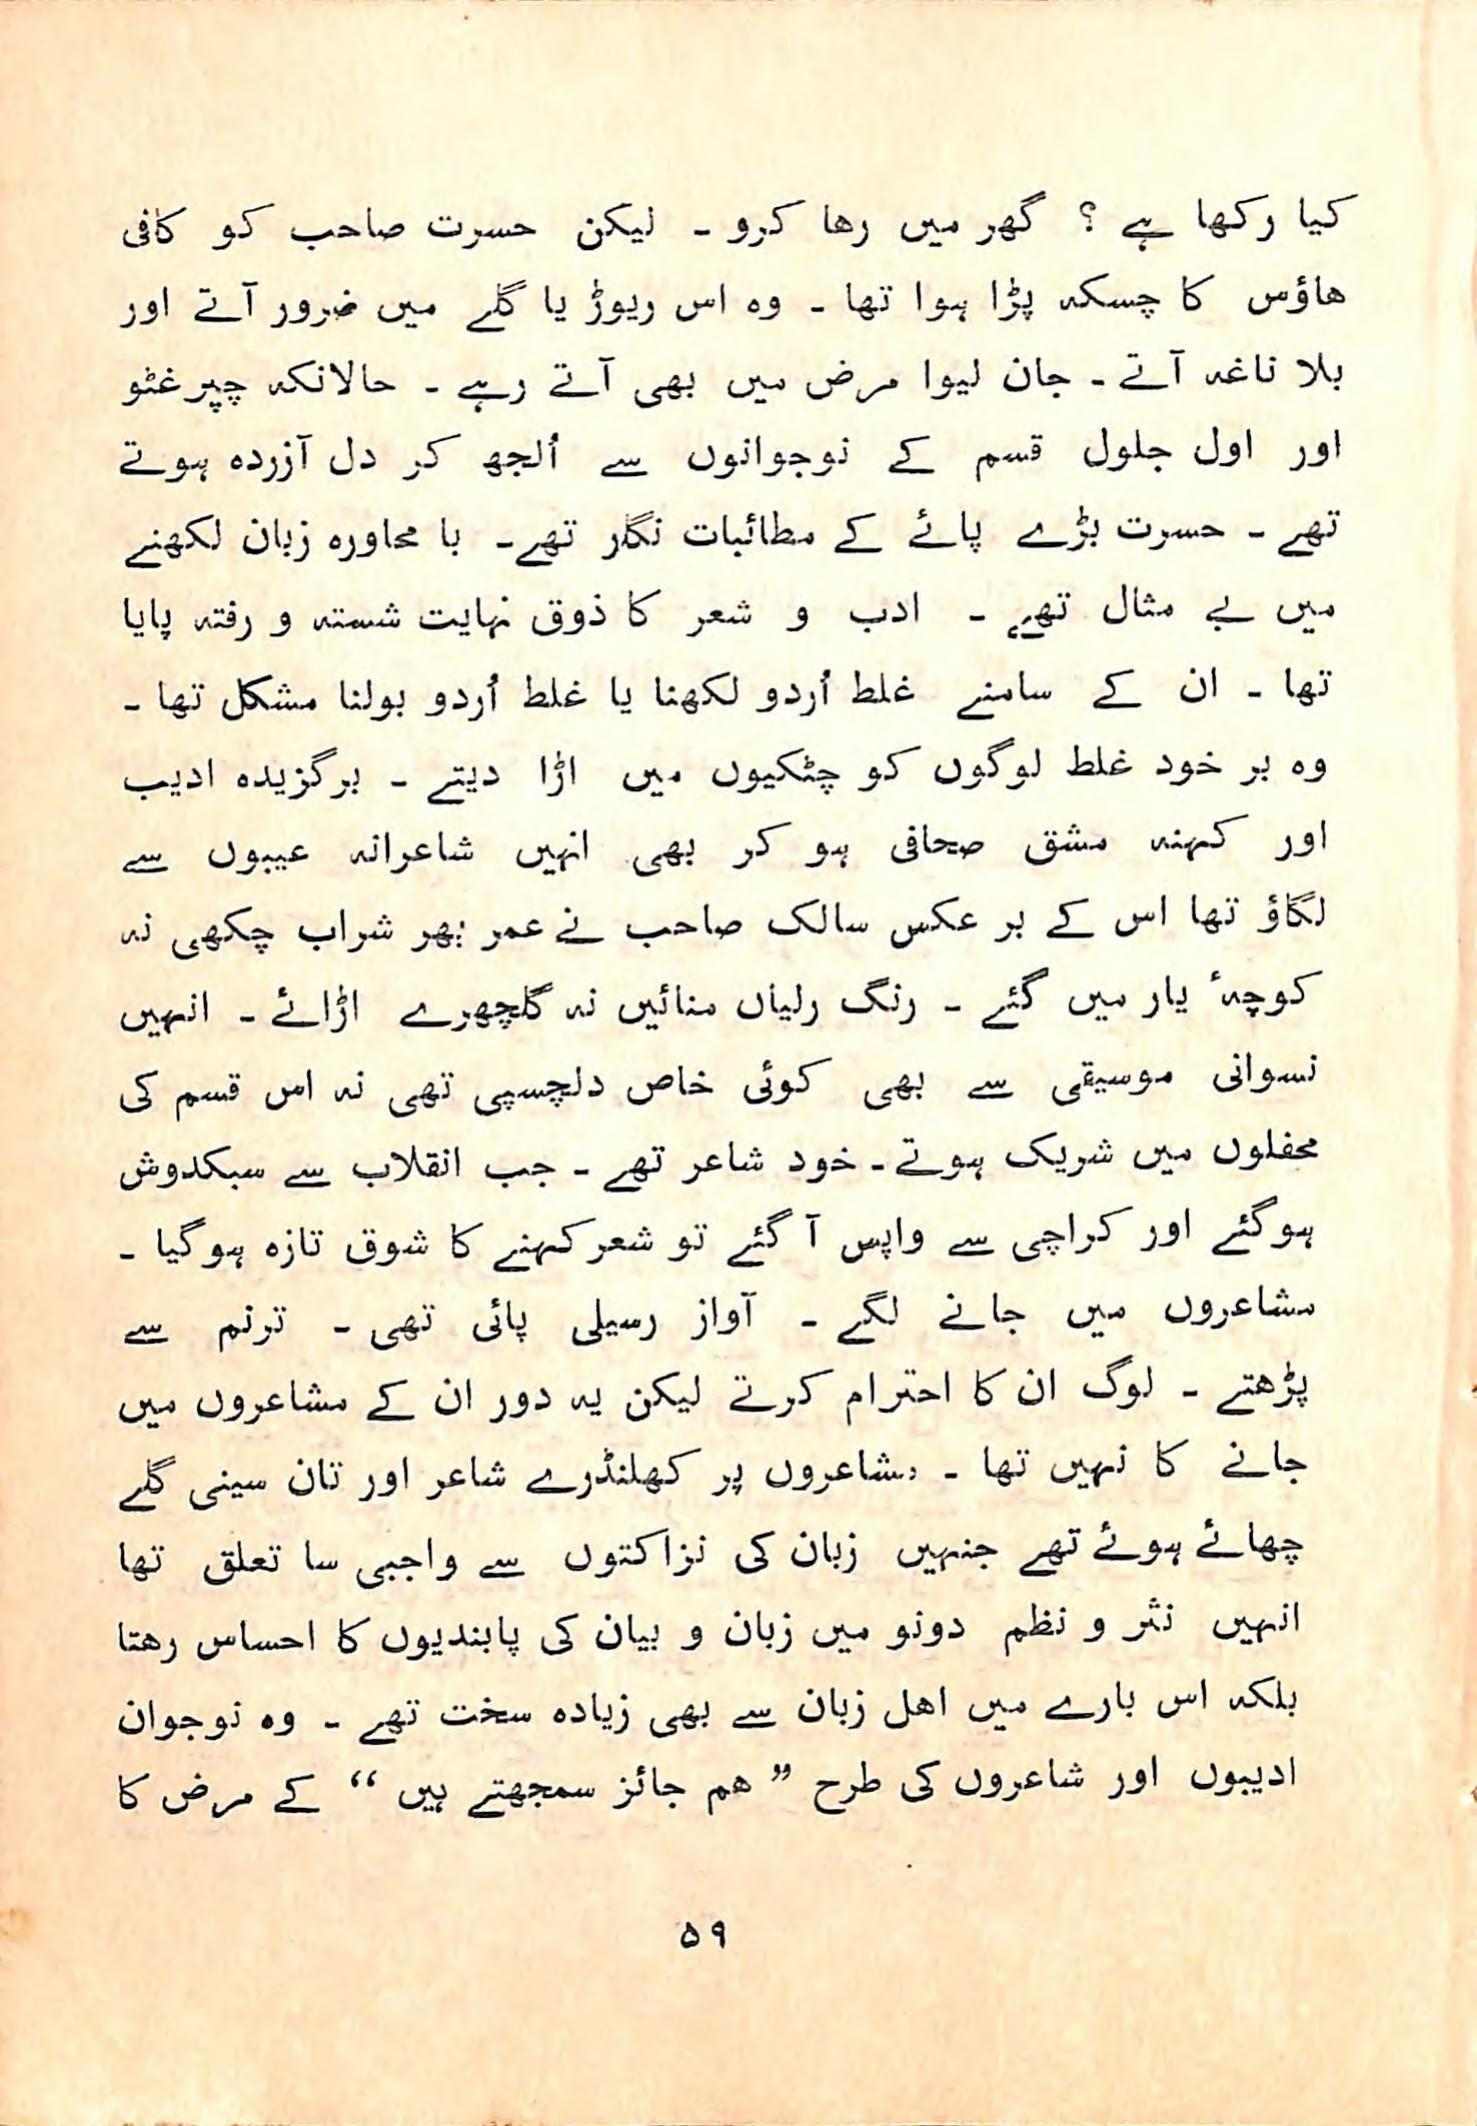 کیا رکھا ہے ؟ گھر میں رھا کرو ۔ لیکن حسرت صاحب کو کافی
ھاؤس کا چسکہ پڑا ہوا تھا ۔ وہ اس ریوڑ یا گلے میں ضرور آتے اور
بلا ناغہ آتے ۔ جان لیوا مرض میں بھی آتے رہے ۔ حالانکہ چپرغٹو
اور اول جلول قسم کے نوجوانوں سے اُلجھ کر دل آزردہ ہوتے
تھے ۔ حسرت بڑے پائے کے مطائبات نگار تھے۔ با محاورہ زبان لکھنے
میں بے مثال تھے ۔ ادب و شعر کا ذوق نہایت شستہ و رفتہ پایا
تھا ۔ ان کے سامنے غلط اُردو لکھنا یا غلط اُردو بولنا مشکل تھا ۔
وہ بر خود غلط لوگوں کو چٹکیوں میں اڑا دیتے ۔ برگزیدہ ادیب
اور کہنہ مشق صحافی ہو کر بھی انہیں شاعرانہ عیبوں سے
لگاؤ تھا اس کے بر عکس سالک صاحب نے عمر بھر شراب چکھی نہ
کوچۂ یار میں گئے ۔ رنگ رلیاں منائیں نہ گلچھرے اڑائے ۔ انہیں
نسوانی موسیقی سے بھی کوئی خاص دلچسپی تھی نہ اس قسم کی
محفلوں میں شریک ہوتے۔ خود شاعر تھے ۔ جب انقلاب سے سبکدوش
ہوگئے اور کراچی سے واپس آ گئے تو شعر کہنے کا شوق تازہ ہوگیا ۔
مشاعروں میں جانے لگے ۔ آواز رسیلی پائی تھی ۔ ترنم سے
پڑھتے ۔ لوگ ان کا احترام کرتے لیکن یہ دور ان کے مشاعروں میں
جانے کا نہیں تھا ۔ مشاعروں پر کھلنڈرے شاعر اور تان سینی گلے
چھائے ہوئے تھے جنہیں زبان کی نزاکتوں سے واجبی سا تعلق تھا
انہیں نثر و نظم دونو میں زبان و بیان کی پابندیوں کا احساس رھتا
بلکہ اس بارے میں اھل زبان سے بھی زیادہ سخت تھے ۔ وہ نوجوان
ادیبوں اور شاعروں کی طرح ” ھم جائز سمجھتے ہیں “ کے مرض کا
۵۹